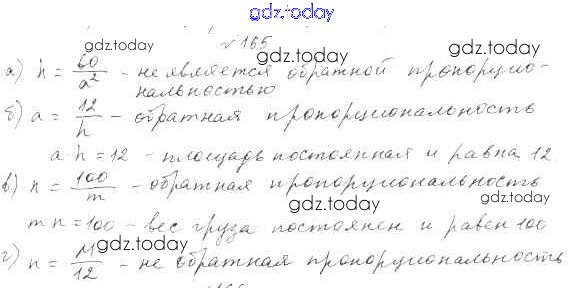 gdz.today
№165
gdz.today
gdz.today
а) h = 60/a² - не является обратной пропорцио-
нальностью
gdz.today
б) a = 12/h - обратная пропорциональность
gdz.today
a·h = 12 - площадь постоянная и равна 12
gdz.today
в) n = 100/m - обратная пропорциональность
gdz.today
mn = 100 - вес груза постоянен и равен 100
gdz.today
г) n = M/12 - не обратная пропорциональность
gdz.today